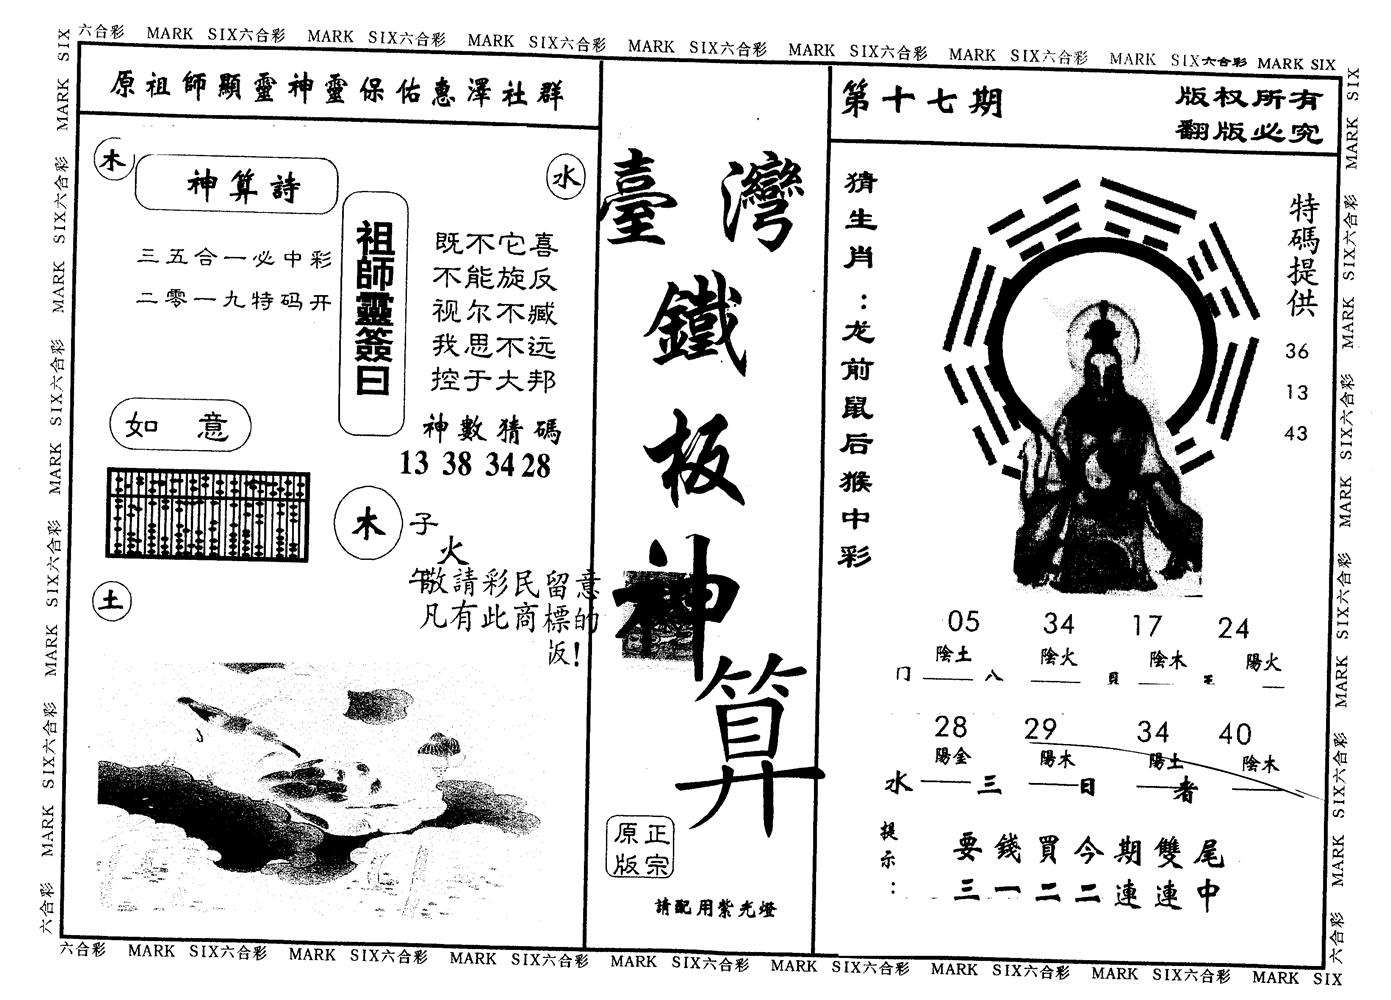 六合彩 MARK SIX六合彩 MARK SIX六合彩 MARK SIX六合彩 MARK SIX六合彩 MARK SIX六合彩 MARK SIX六合彩 MARK SIX六合彩 MARK SIX
原祖師顯靈神靈保佑惠澤社群
木
神算詩
水
三五合一必中彩
二零一九特码开
祖師靈簽曰
既不它喜
不能旋反
视尔不臧
我思不远
控于大邦
如意
神數猜碼
13 38 34 28
木
子
火
午
敬請彩民留意
凡有此商標的
版!
土
臺灣
鐵
板
神
算
正宗
原版
請配用紫光燈
第十七期
版权所有
翻版必究
猜生肖:龙前鼠后猴中彩
特碼提供
36
13
43
05 34 17 24
陰土 陰火 陰木 陽火
门 八 貝 王
28 29 34 40
陽金 陽木 陽土 陰木
水 三 日 者
提示:
要錢買今期雙尾
三一二二連連中
六合彩 MARK SIX六合彩 MARK SIX六合彩 MARK SIX六合彩 MARK SIX六合彩 MARK SIX六合彩 MARK SIX六合彩 MARK SIX六合彩 MARK SIX
六合彩 MARK SIX六合彩 MARK SIX六合彩 MARK SIX六合彩 MARK SIX六合彩 MARK SIX
六合彩 MARK SIX六合彩 MARK SIX六合彩 MARK SIX六合彩 MARK SIX六合彩 MARK SIX